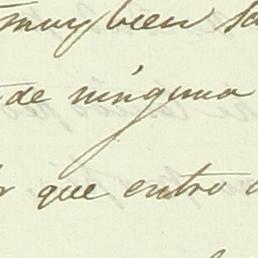 muy bien
de ninguna
que entro